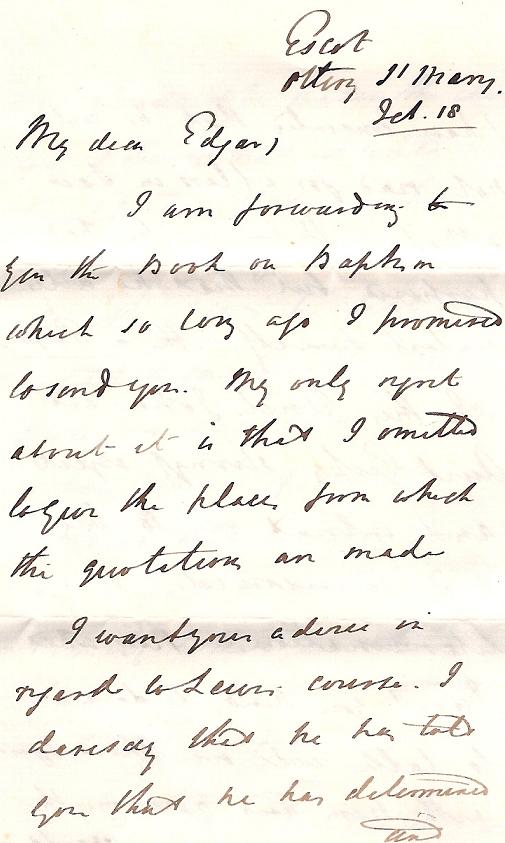 Escot
Ottery St Mary.
Feb. 18
My dear Edgar,
I am forwarding to
you the Book on Baptism
which so long ago I promised
to send you. My only regret
about it is that I omitted
to give the places from which
the quotations are made
I want your advice in
regard to Lewis course. I
daresay that he has told
you that he has determined